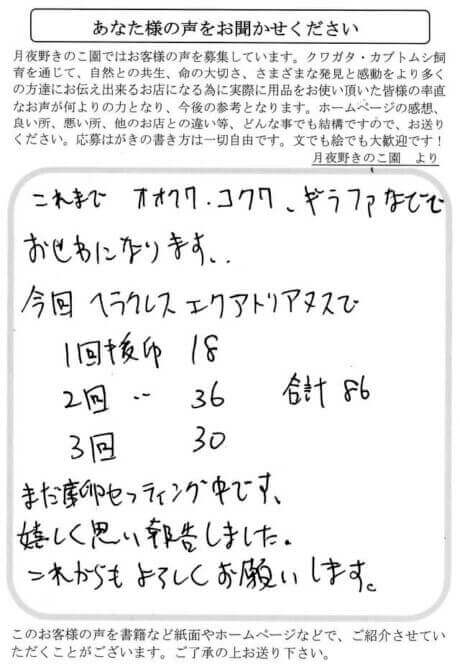 あなた様の声をお聞かせください
月夜野きのこ園ではお客様の声を募集しています。クワガタ・カブトムシ飼
育を通じて、自然との共生、命の大切さ、さまざまな発見と感動をより多く
の方達にお伝え出来るお店になる為に実際に用品をお使い頂いた皆様の率直
なお声が何よりの力となり、今後の参考となります。ホームページの感想、
良い所、悪い所、他のお店との違い等、どんな事でも結構ですので、お送り
ください。応募はがきの書き方は一切自由です。文でも絵でも大歓迎です！
月夜野きのこ園　より
これまで オオクワ．コクワ、ギラファなどで
おせわになります．．
今回 ヘラクレス エクアトリアヌスで
1回 採卵 18
2回 〃 36 合計 86
3回 30
まだ産卵セッティング中です、
嬉しく思い報告しました。
これからもよろしくお願いします。
このお客様の声を書籍など紙面やホームページなどで、ご紹介させてい
ただくことがございます。ご了承の上お送り下さい。